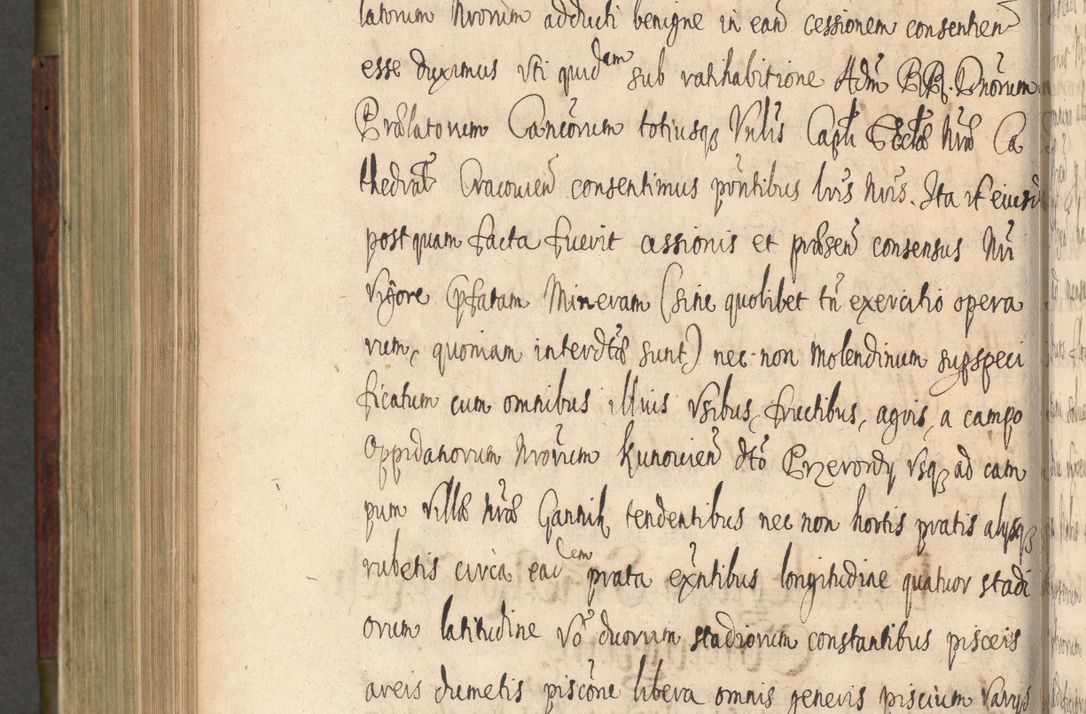 latorum Nrorum adducti benigne in eand cessionem consentien
esse duximus uti quidem sub ratihabitione Adm RRB. Dnorum
Prælatorum Canconum totiusq Vnlis Capli Ecclæ Nræ Ca
thedral Cracovien consentimus pñtibus lris Nris. Ita ut eiusd
postquam facta fuerit cessionis et præsen consensus Nri
vigore pfatam Mineram (sine quolibet tñ exercitio opera
rum, quoniam interdtæ sunt) nec non Molendinum supspeci
ficatum cum omnibus illius usibus, fructibus, agris, a campo
Oppidanorum Nrorum Kunovien dto Przerordy usq ad cam
pum villæ Nræ Garnik tendentibus nec non hortis pratis alysq
rubetis circa eadem prata exntibus longitudine quatuor stadi
orum latitudine vo duorum stadiorum constantibus pisceis
aveis dumetis piscone libera omnis generis piscium varys